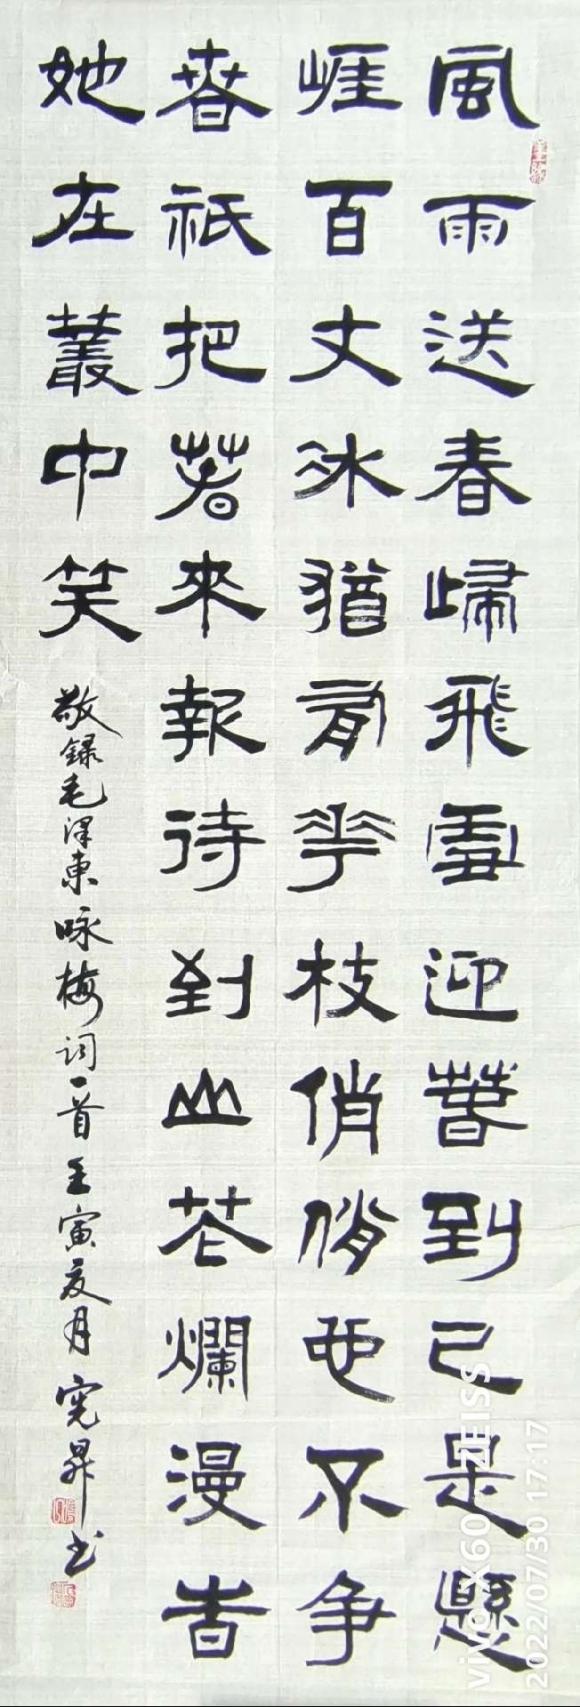 風雨送春歸飛雪迎萅到已是懸
崕百丈冰猶有花枝俏俏也不争
春祇把萅來報待到山花爛漫旹
她在叢中笑
敬録毛泽東咏梅词一首壬寅夏月宪昇书
vivo X60 ZEISS
2022/07/30 17:17